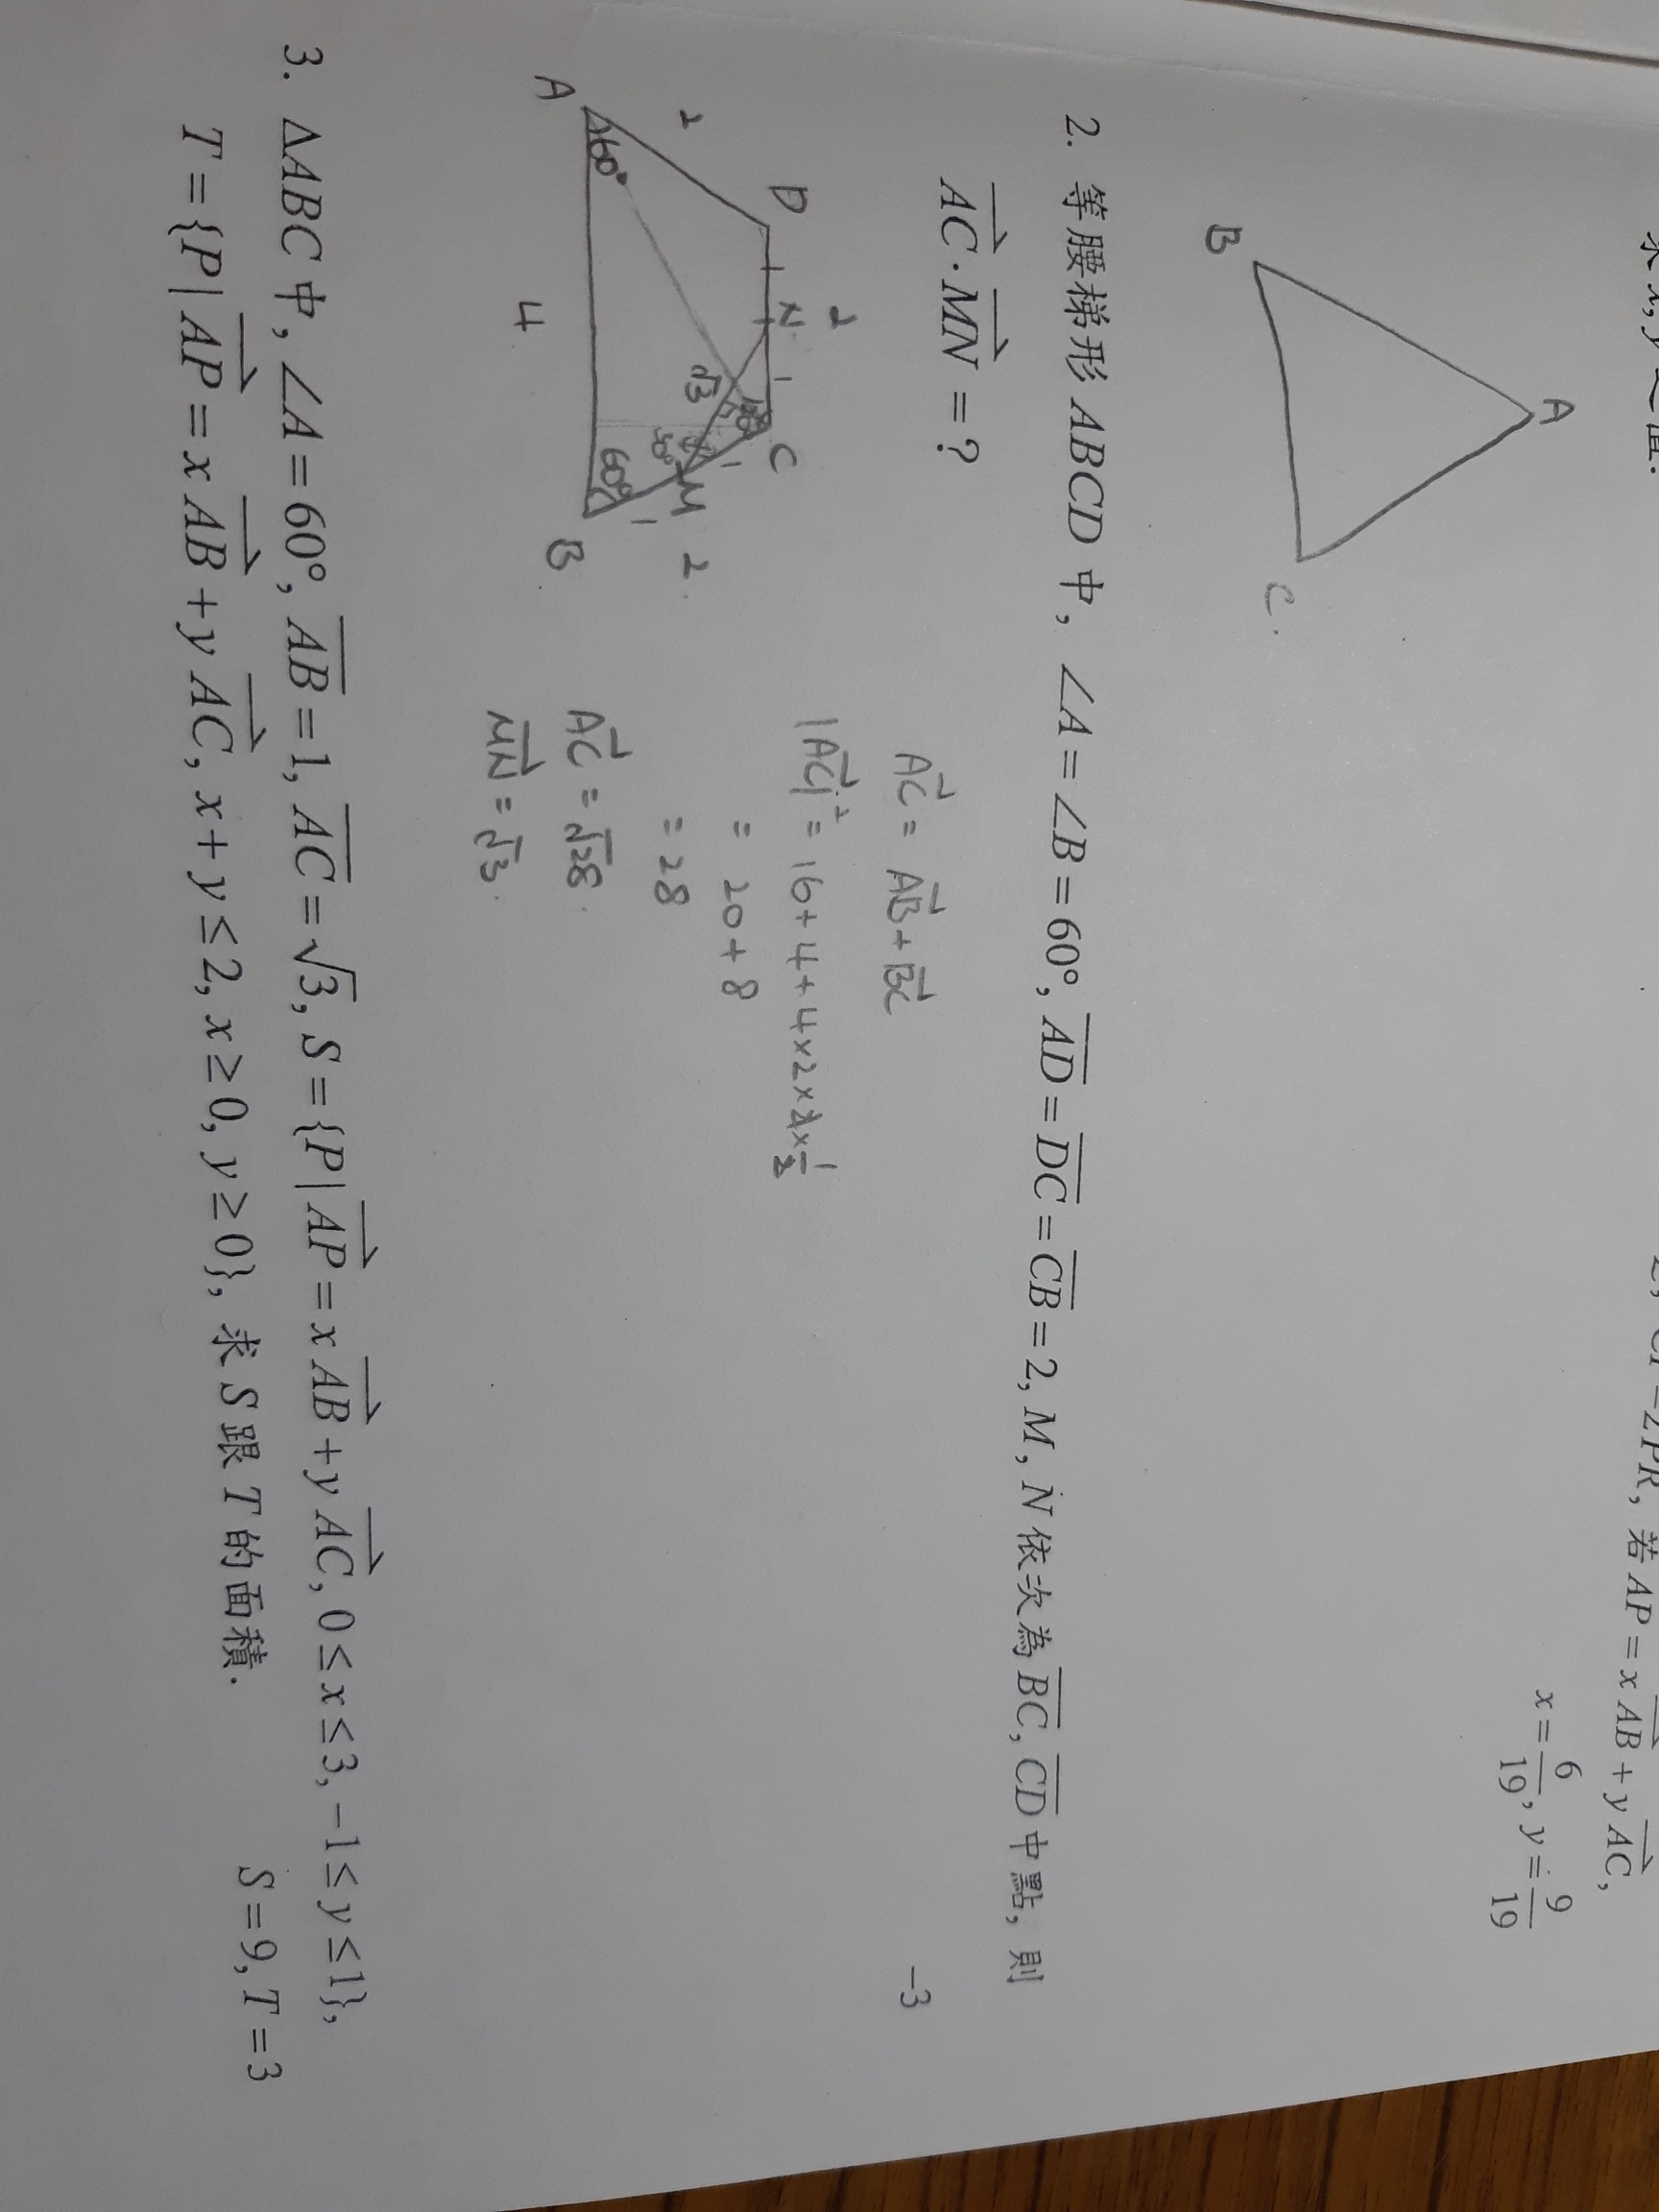 求 x, y 之值.
CP=2PR, 若 AP = x AB + y AC,
x = 6/19, y = 9/19
A
B
C.
2. 等腰梯形 ABCD 中, ∠A = ∠B = 60°, AD = DC = CB = 2, M, N 依次為 BC, CD 中點, 則
AC · MN = ?
-3
D
2
2
N
1
C
A
60°
√3
1
M
30°
60°
1
2
B
4
AC = AB + BC
|AC|² = 16 + 4 + 4×2×2×1/2
= 20 + 8
= 28
AC = √28
MN = √3
3. ΔABC 中, ∠A = 60°, AB = 1, AC = √3, S = {P | AP = x AB + y AC, 0 ≤ x ≤ 3, -1 ≤ y ≤ 1},
T = {P | AP = x AB + y AC, x + y ≤ 2, x ≥ 0, y ≥ 0}, 求 S 跟 T 的面積.
S = 9, T = 3